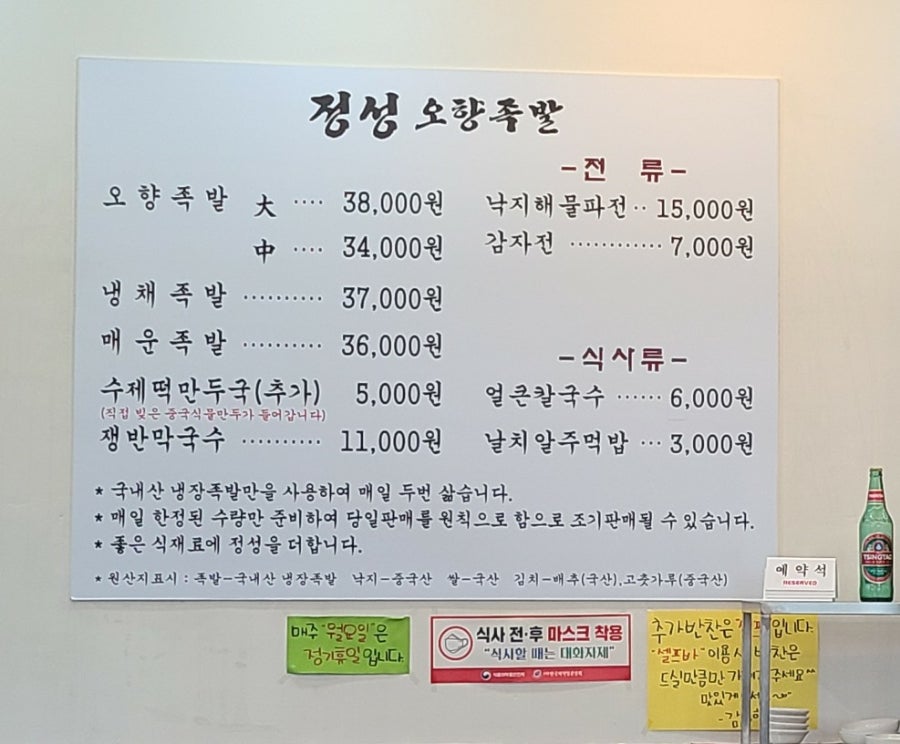 정성 오향족발
오향족발 大 ···· 38,000원
中 ···· 34,000원
냉채족발 ·········· 37,000원
매운족발 ·········· 36,000원
수제떡만두국(추가) 5,000원
(직접 빚은 중국식물만두가 들어갑니다)
쟁반막국수 ·········· 11,000원
-전 류-
낙지해물파전 ·· 15,000원
감자전 ············ 7,000원
-식사류-
얼큰칼국수 ······ 6,000원
날치알주먹밥 ··· 3,000원
* 국내산 냉장족발만을 사용하여 매일 두번 삶습니다.
* 매일 한정된 수량만 준비하여 당일판매를 원칙으로 함으로 조기판매될 수 있습니다.
* 좋은 식재료에 정성을 더합니다.
* 원산지표시 : 족발-국내산 냉장족발 낙지-중국산 쌀-국산 김치-배추(국산).고춧가루(중국산)
예약석
RESERVED
TSINGTAO
매주 "월요일"은
정기휴일입니다.
식사 전·후 마스크 착용
"식사할 때는 대화자제"
식품의약품안전처
추가반찬은 입니다.
"셀프바" 이용시 반찬은
드실만큼만 주세요^^
맛있게